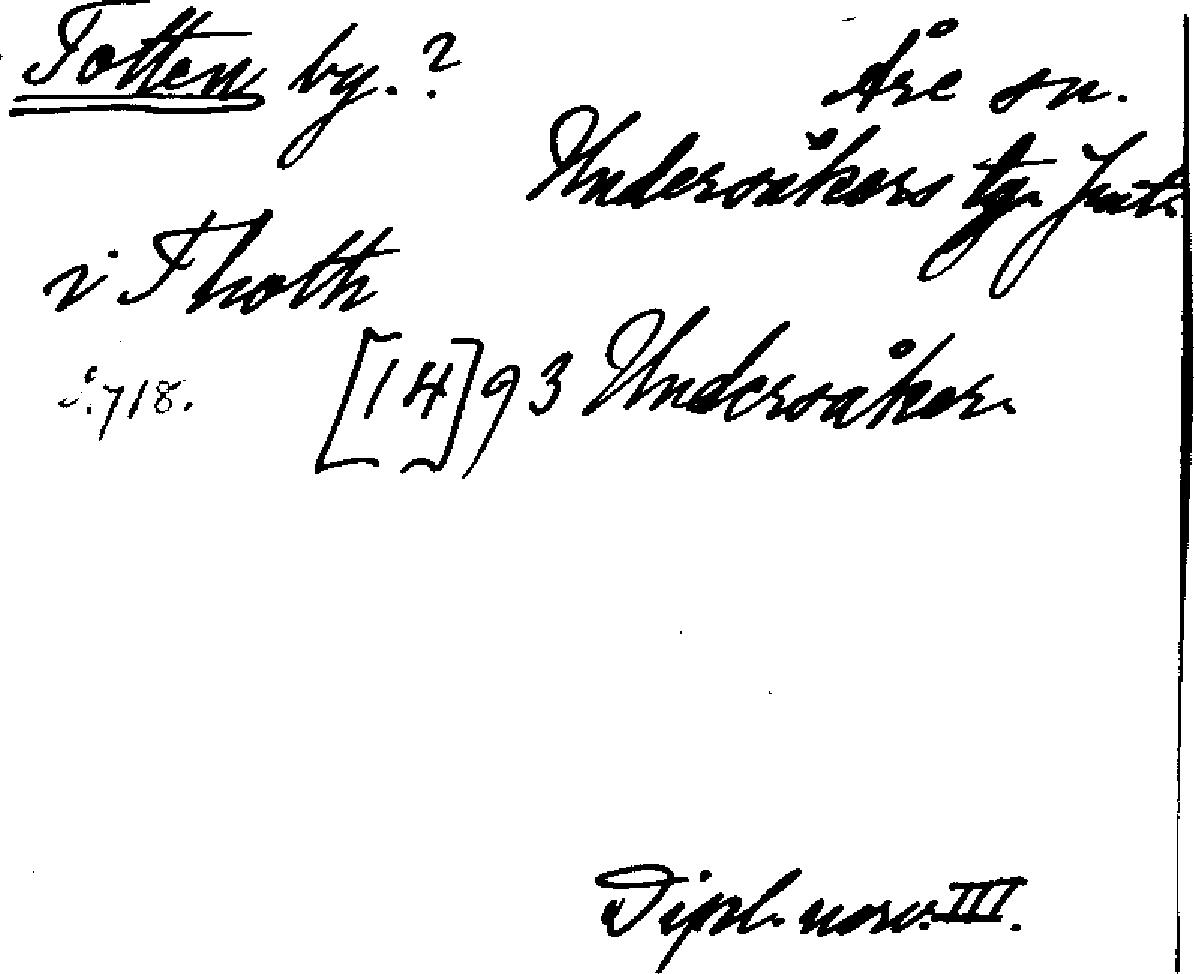 Totten by.?
Åre sn.
Undersåkers tg. Jmtl.
i Thotth
s. 718.
[14]93 Undersåker.
Dipl. norv. III.